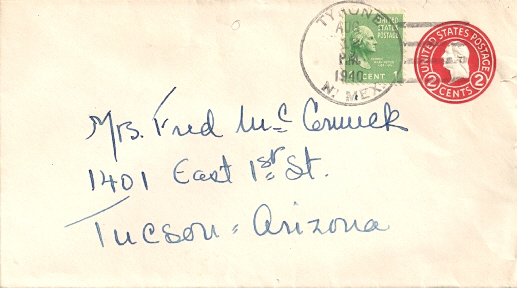 TYRONE
AUG
P.M.
1940
N. MEX.
UNITED
STATES
POSTAGE
CENT 1
UNITED STATES POSTAGE
2 CENTS 2
Mrs. Fred McCormick
1401 East 1st St.
Tucson - Arizona